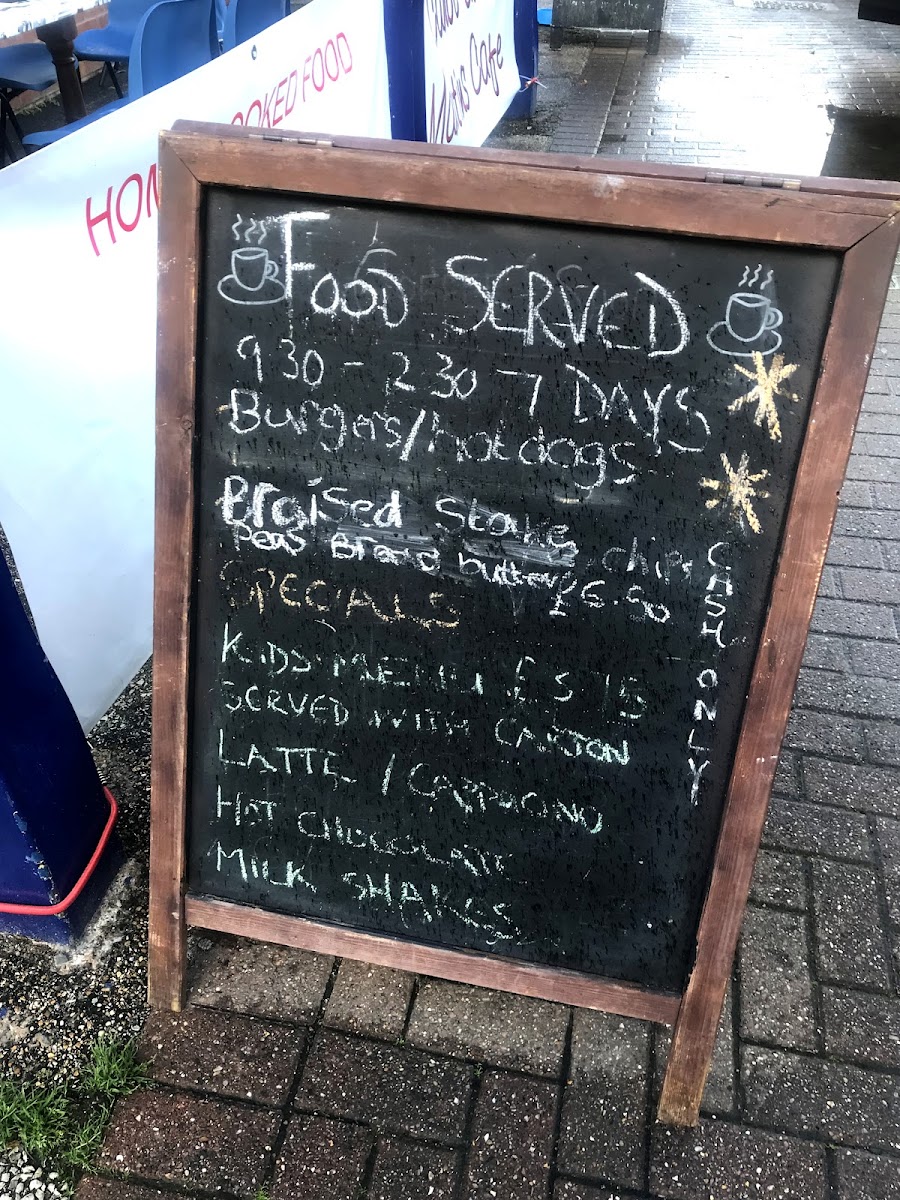 HOM OOKED FOOD
Mates Cafe
FOOD SERVED
9 30 - 2 30 - 7 DAYS
Burgers/hotdogs
Braised Stake
Peas Bread butter chips £6.50
SPECIALS
KIDS MENU £5 15
SERVED WITH CARTON
LATTE / CAPPUCINO
HOT CHOCOLATE
MILK SHAKES
CASH ONLY